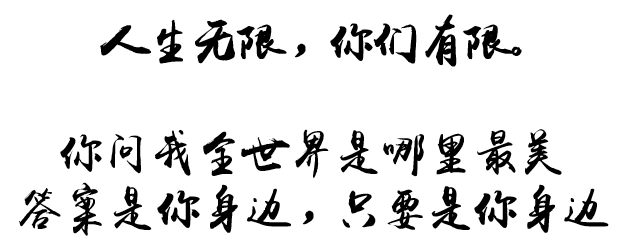 人生无限，你们有限。
你问我全世界是哪里最美
答案是你身边，只要是你身边